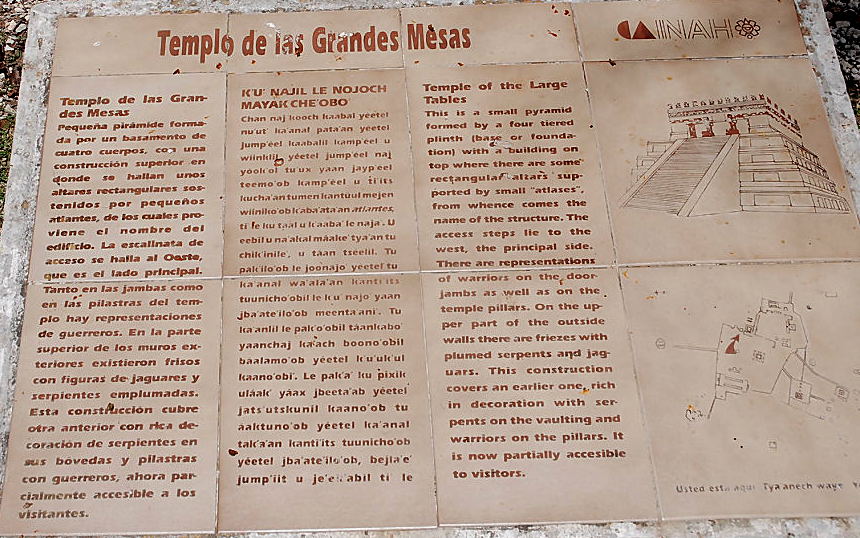 Templo de las Grandes Mesas
INAH
Templo de las Gran-
des Mesas
Pequeña pirámide forma-
da por un basamento de
cuatro cuerpos, con una
construcción superior en
donde se hallan unos
altares rectangulares sos-
tenidos por pequeños
atlantes, de los cuales pro-
viene el nombre del
edificio. La escalinata de
acceso se halla al Oeste,
que es el lado principal.
Tanto en las jambas como
en las pilastras del tem-
plo hay representaciones
de guerreros. En la parte
superior de los muros ex-
teriores existieron frisos
con figuras de jaguares y
serpientes emplumadas.
Esta construcción cubre
otra anterior con rica de-
coración de serpientes en
sus bóvedas y pilastras
con guerreros, ahora par-
cialmente accesible a los
visitantes.
K'U' NAJIL LE NOJOCH
MAYAK CHE'OBO'
Chan naj kooch kaabal yéetel
nu'ut' ka'anal pata'an yéetel
jump'éel kaabalil kamp'éel u
wíinklil, yéetel jump'éel naj
yook'ol tu'ux yaan jayp'éel
teemo'ob kamp'éel u ti'its
kucha'an tumen kantúul mejen
wíiniko'ob k'aba'ata'an atlantes,
ti' le ku taal u k'aaba' le naja'. U
eebil u na'akal máake' tya'an tu
chik'inile', u táan tseelil. Tu
pak'ilo'ob le joonajo' yéetel tu
ka'anal wa'ala'an kanti'its
tuunicho'obil le k'u' najo yaan
jba'ate'ilo'ob meenta'ani'. Tu
ka'anlil le pak'o'obil táankabo'
yaanchaj ka'ach boono'obil
báalamo'ob yéetel k'u'uk'ul
kaano'obi'. Le pak'a' ku pixik
uláak' yáax jbeeta'ab yéetel
jats'utskunil kaano'ob tu
áaktuno'ob yéetel ka'anal
tak'a'an kanti'its tuunicho'ob
yéetel jba'ate'ilo'ob, bejla'e'
jump'íit u je'ek'abil ti' le
Temple of the Large
Tables
This is a small pyramid
formed by a four tiered
plinth (base or founda-
tion) with a building on
top where there are some
rectangular altars sup-
ported by small "atlases",
from whence comes the
name of the structure. The
access steps lie to the
west, the principal side.
There are representations
of warriors on the door-
jambs as well as on the
temple pillars. On the up-
per part of the outside
walls there are friezes with
plumed serpents and jag-
uars. This construction
covers an earlier one, rich
in decoration with ser-
pents on the vaulting and
warriors on the pillars. It
is now partially accesible
to visitors.
Usted esta aquí Tya'anech waye'